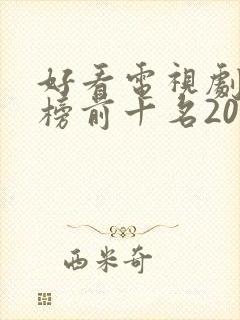 好看電視劇
榜前十名20
西米奇